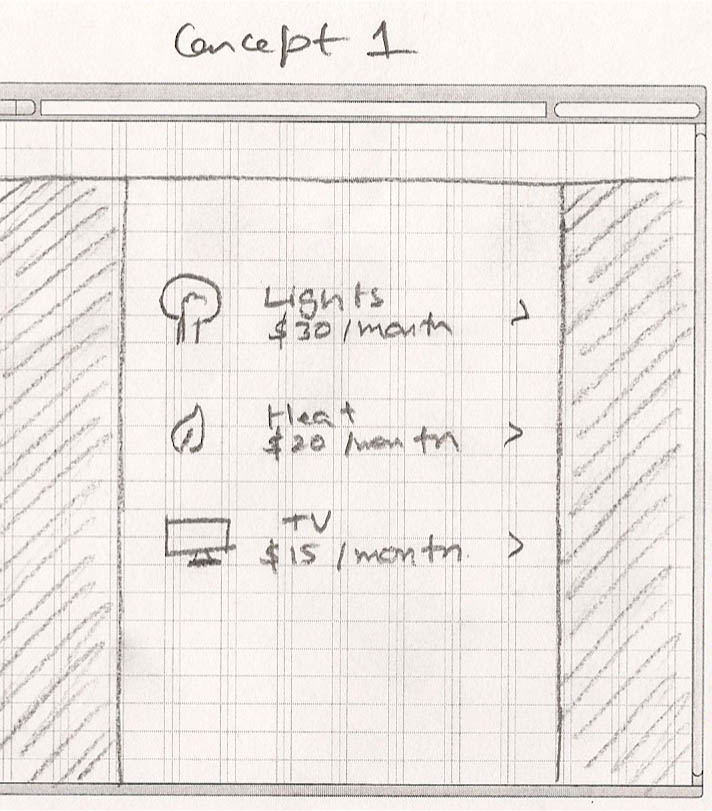 Concept 1
Lights
$30/month
>
Heat
$20/month
>
TV
$15/month
>